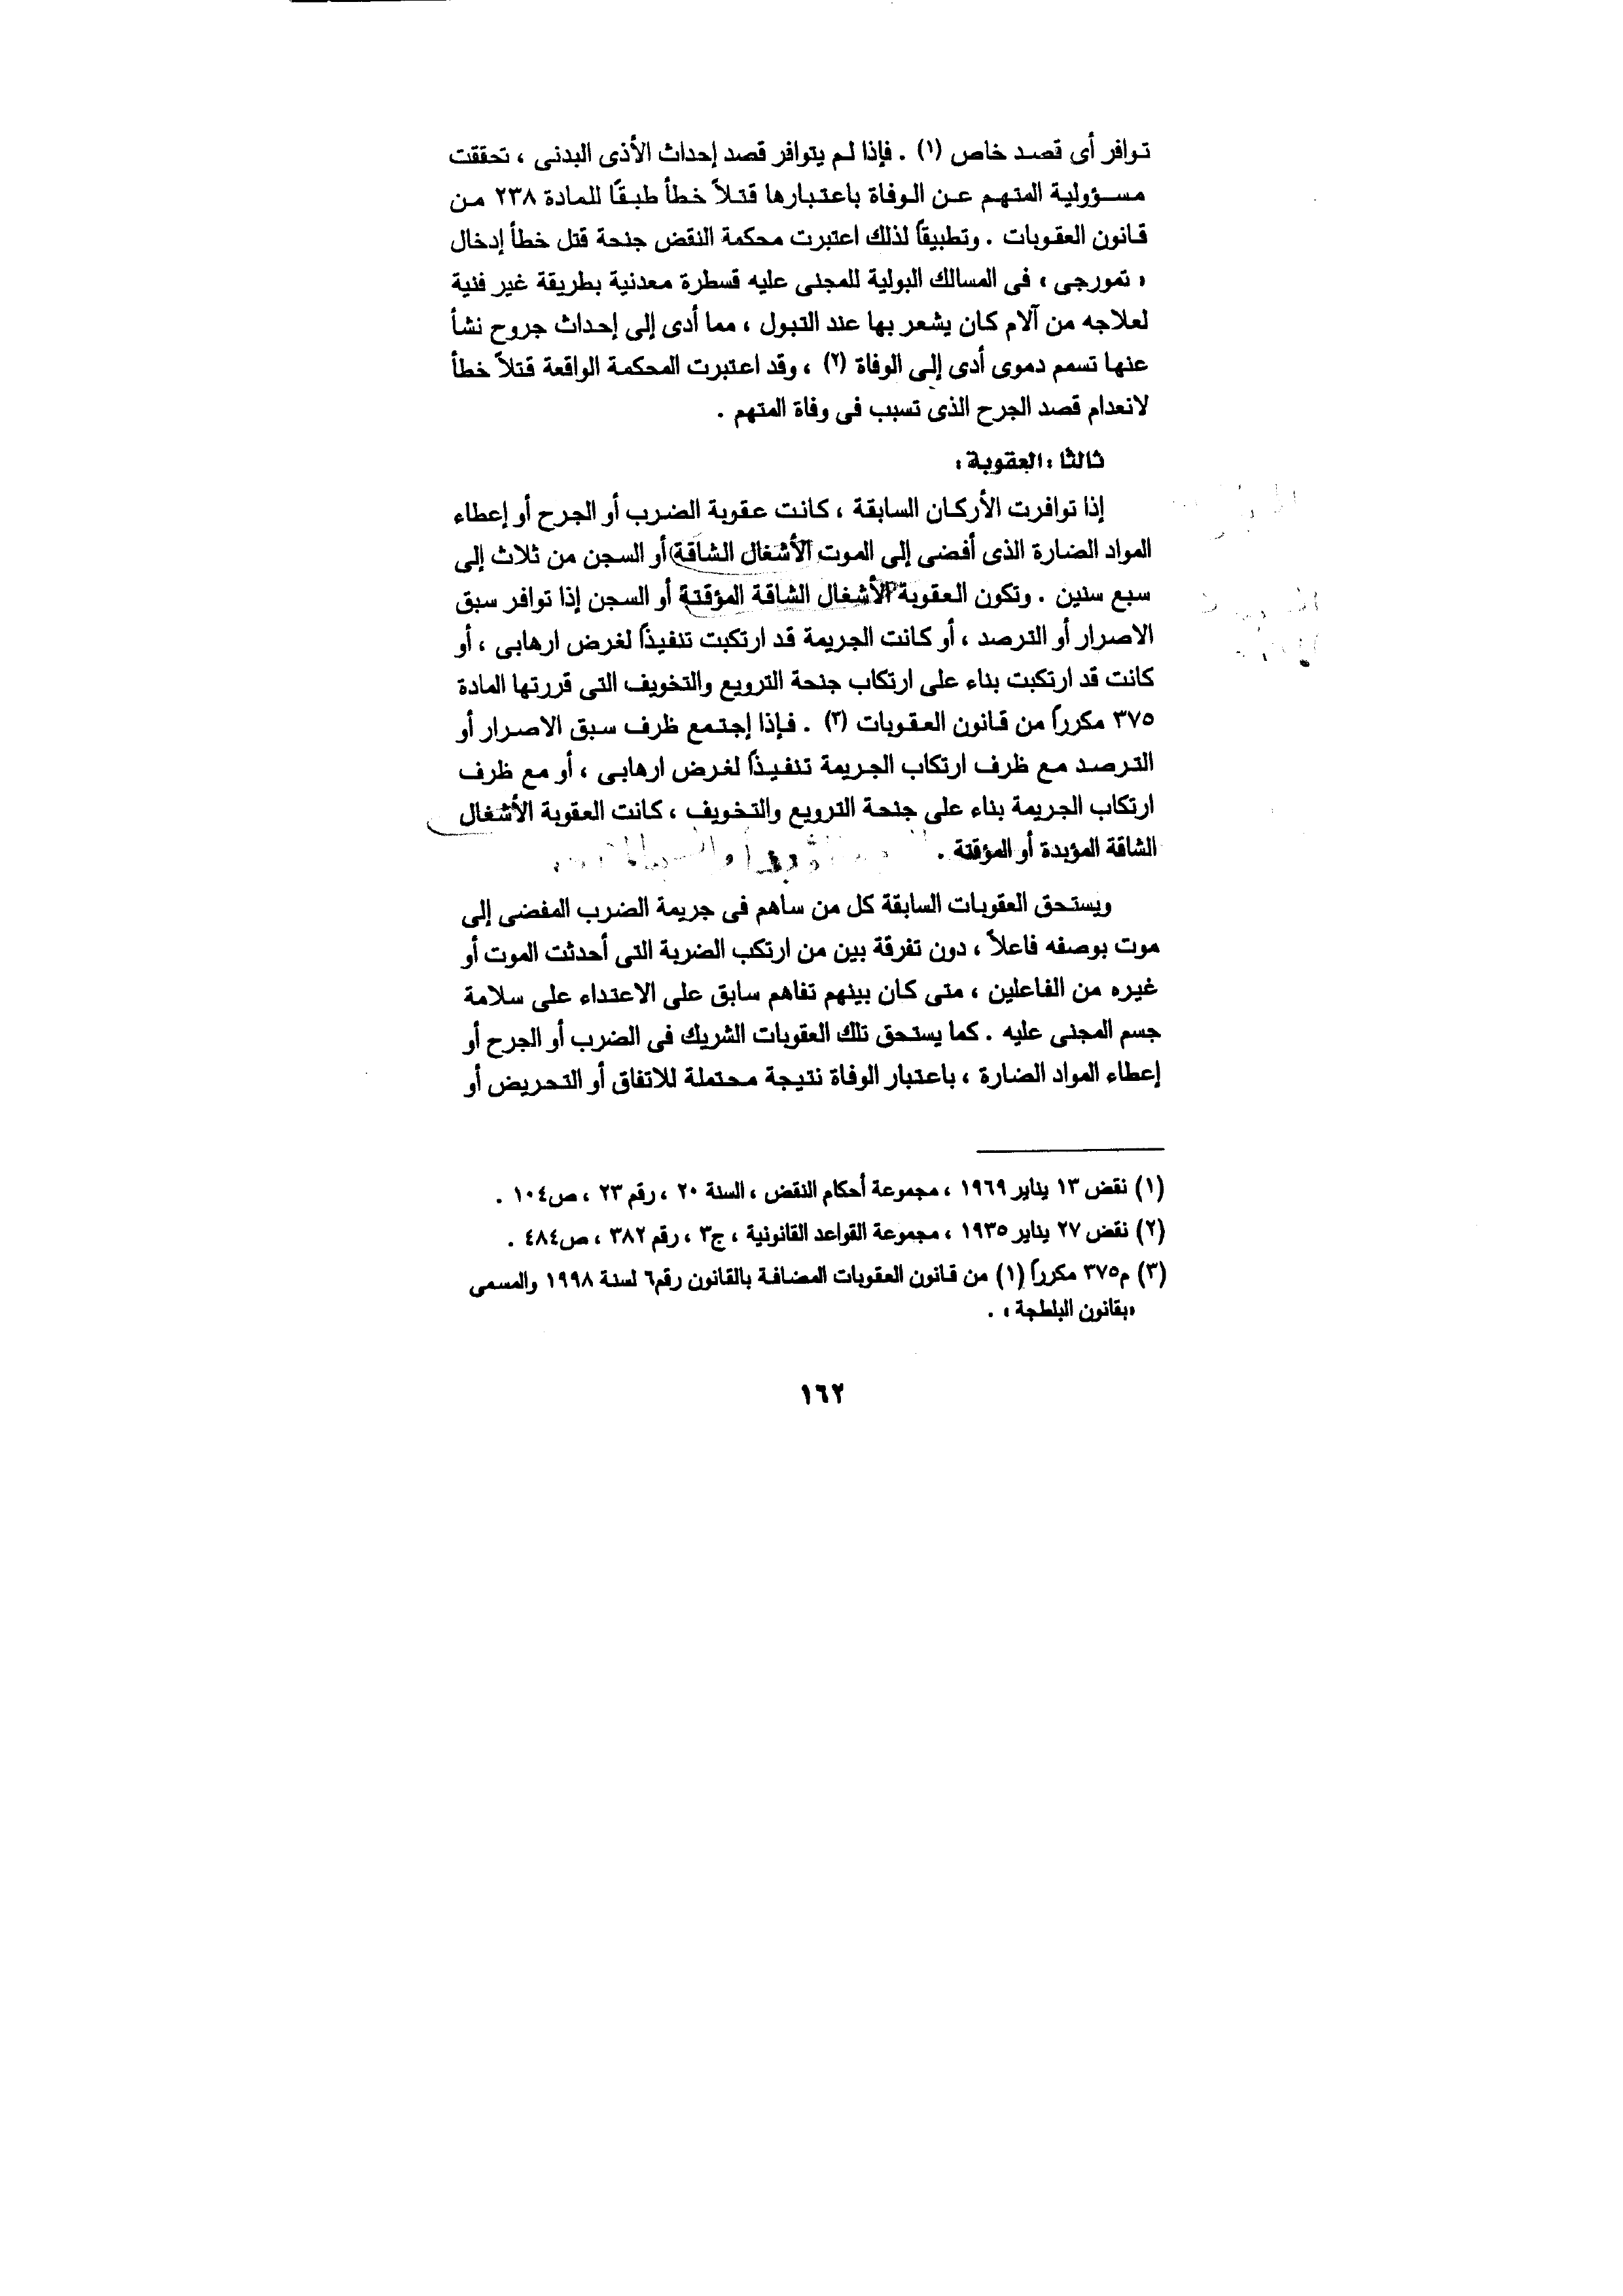 توافر أى قصد خاص (١) . فإذا لم يتوافر قصد إحداث الأذى البدنى ، تحققت
مسؤولية المتهم عن الوفاة باعتبارها قتلاً خطأ طبقًا للمادة ٢٣٨ من
قانون العقوبات . وتطبيقاً لذلك اعتبرت محكمة النقض جنحة قتل خطأ إدخال
« تمورجى » فى المسالك البولية للمجنى عليه قسطرة معدنية بطريقة غير فنية
لعلاجه من آلام كان يشعر بها عند التبول ، مما أدى إلى إحداث جروح نشأ
عنها تسمم دموى أدى إلى الوفاة (٢) ، وقد اعتبرت المحكمة الواقعة قتلاً خطأ
لانعدام قصد الجرح الذى تسبب فى وفاة المتهم .
ثالثا : العقوبة :
إذا توافرت الأركان السابقة ، كانت عقوبة الضرب أو الجرح أو إعطاء
المواد الضارة الذى أفضى إلى الموت الأشغال الشاقة أو السجن من ثلاث إلى
سبع سنين . وتكون العقوبة الأشغال الشاقة المؤقتة أو السجن إذا توافر سبق
الاصرار أو الترصد ، أو كانت الجريمة قد ارتكبت تنفيذاً لغرض ارهابى ، أو
كانت قد ارتكبت بناء على ارتكاب جنحة الترويع والتخويف التى قررتها المادة
٣٧٥ مكرراً من قانون العقوبات (٣) . فإذا إجتمع ظرف سبق الاصرار أو
الترصد مع ظرف ارتكاب الجريمة تنفيذاً لغرض ارهابى ، أو مع ظرف
ارتكاب الجريمة بناء على جنحة الترويع والتخويف ، كانت العقوبة الأشغال
الشاقة المؤبدة أو المؤقتة .
ويستحق العقوبات السابقة كل من ساهم فى جريمة الضرب المفضى إلى
موت بوصفه فاعلاً ، دون تفرقة بين من ارتكب الضربة التى أحدثت الموت أو
غيره من الفاعلين ، متى كان بينهم تفاهم سابق على الاعتداء على سلامة
جسم المجنى عليه . كما يستحق تلك العقوبات الشريك فى الضرب أو الجرح أو
إعطاء المواد الضارة ، باعتبار الوفاة نتيجة محتملة للاتفاق أو التحريض أو
(١) نقض ١٣ يناير ١٩٦٩ ، مجموعة أحكام النقض ، السنة ٢٠ ، رقم ٢٣ ، ص١٠٤ .
(٢) نقض ٢٧ يناير ١٩٣٥ ، مجموعة القواعد القانونية ، ج٣ ، رقم ٣٨٢ ، ص٤٨٤ .
(٣) م٣٧٥ مكرراً (١) من قانون العقوبات المضافة بالقانون رقم٦ لسنة ١٩٩٨ والمسمى
«بقانون البلطجة» .
١٦٢